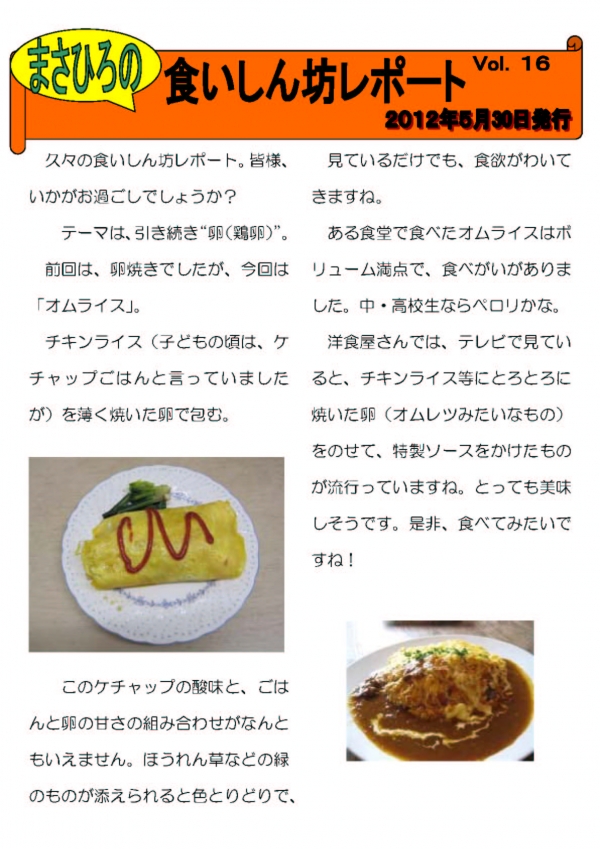 まさひろの
食いしん坊レポート
Vol. 16
2012年5月30日発行
久々の食いしん坊レポート。皆様、
いかがお過ごしでしょうか？
テーマは、引き続き“卵（鶏卵）”。
前回は、卵焼きでしたが、今回は
「オムライス」。
チキンライス（子どもの頃は、ケ
チャップごはんと言っていました
が）を薄く焼いた卵で包む。
このケチャップの酸味と、ごは
んと卵の甘さの組み合わせがなんと
もいえません。ほうれん草などの緑
のものが添えられると色とりどりで、
見ているだけでも、食欲がわいて
きますね。
ある食堂で食べたオムライスはボ
リューム満点で、食べがいがありま
した。中・高校生ならペロリかな。
洋食屋さんでは、テレビで見てい
ると、チキンライス等にとろとろに
焼いた卵（オムレツみたいなもの）
をのせて、特製ソースをかけたもの
が流行っていますね。とっても美味
しそうです。是非、食べてみたいで
すね！